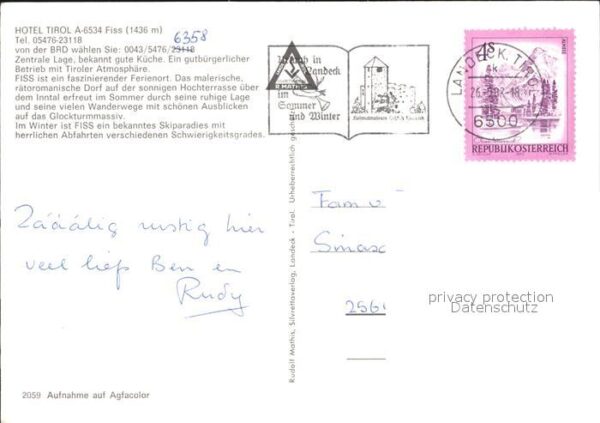 HOTEL TIROL A-6534 Fiss (1436 m)
Tel. 05476-23118
6358
von der BRD wählen Sie: 0043/5476/23118
Zentrale Lage, bekannt gute Küche. Ein gutbürgerlicher
Betrieb mit Tiroler Atmosphäre.
FISS ist ein faszinierender Ferienort. Das malerische,
rätoromanische Dorf auf der sonnigen Hochterrasse über
dem Inntal erfreut im Sommer durch seine ruhige Lage
und seine vielen Wanderwege mit schönen Ausblicken
auf das Glockturmmassiv.
Im Winter ist FISS ein bekanntes Skiparadies mit
herrlichen Abfahrten verschiedenen Schwierigkeitsgrades.
Zááálig rustig hier
veel liefs Ben en
Rudy
2059 Aufnahme auf Agfacolor
Rudolf Mathis, Silvrettaverlag, Landeck - Tirol. Urheberrechtlich
in
Landeck
R. MATHIS
im
Sommer
und Winter
LANDECK, TIROL
6500
4S
REPUBLIK ÖSTERREICH
Fam
2561
privacy protection
Datenschutz